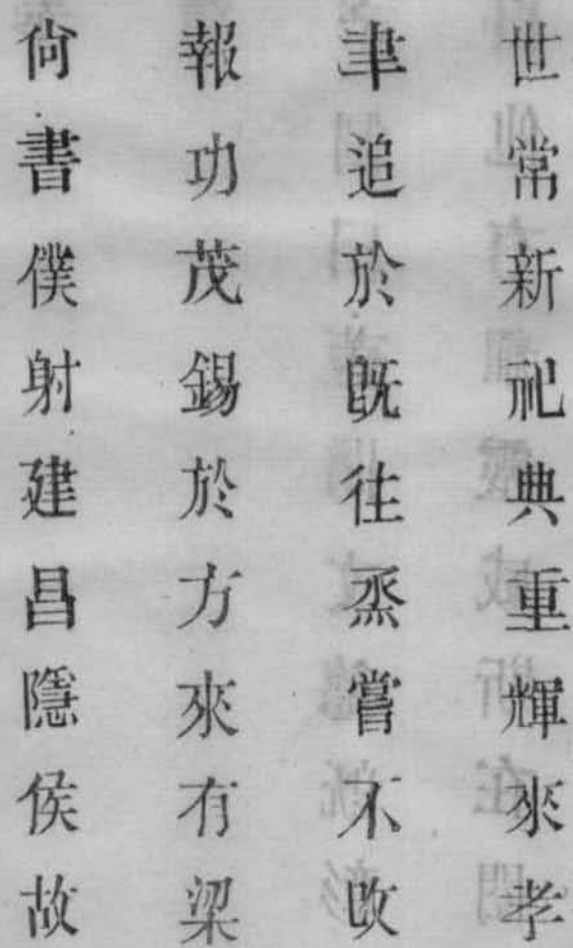 世常新祀典重輝來孝
聿追於既往烝嘗不改
報功茂錫於方來有梁
尙書僕射建昌隱侯故